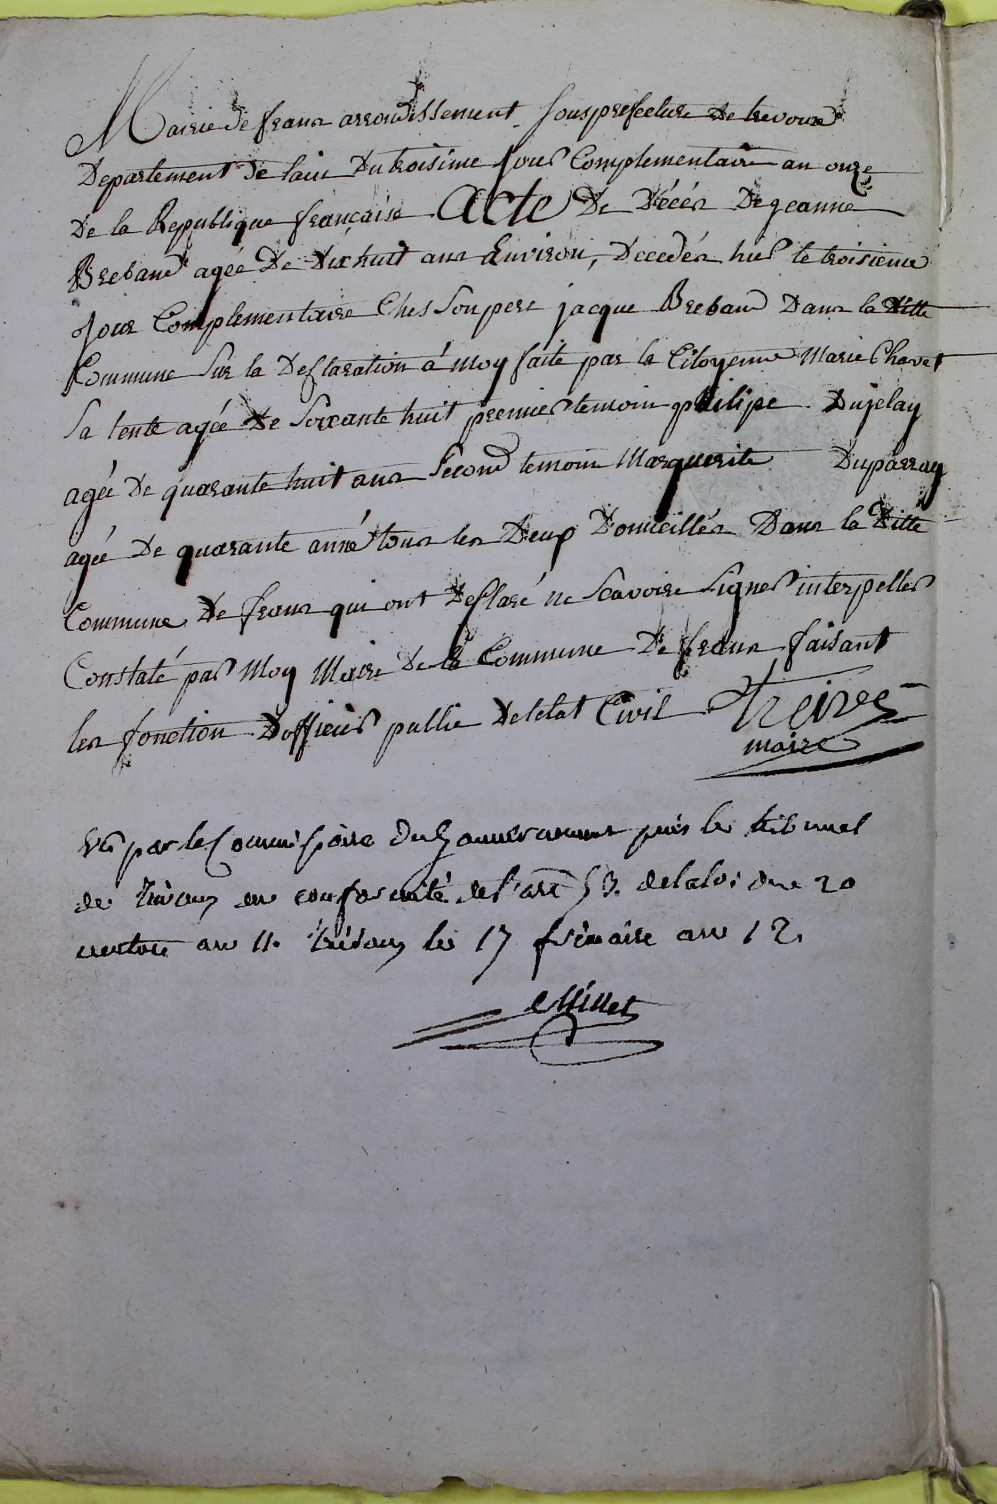 Mairie de frans arrondissement Sousprefecture de trevoux
Departement de lain Du troisime Jour Complementaire an onze
De la Republique française Acte De Décés De jeanne
Breband agée De Dix huit ans Environ, Decedés hier le troisieme
Jour Complementaire Ches Son pere jacque Breband Dans la ditte
Commune Sur la Desclaration á moy faite par la Citoyenne Marie Chavet
Sa tente agée de Soixante huit premier temoin philipe Dujelay
agée De quarante huit ans Second temoin Marguerite Duparray
agée De quarante anné tous les Deux Domicilliés Dans la Ditte
Commune De frans qui ont Desclaré ne Scavoire Signer interpeller
Constaté par Moy Maire De la Commune De frans faisant
les fonction Dofficier public Deletat Civil Treives
maire
Vu par le Commissaire du Gouvernement près le tribunal
de Trévoux en conformité de l'art 53. de la loi du 20
ventose an 11. trévoux le 17 frimaire an 12.
Millet